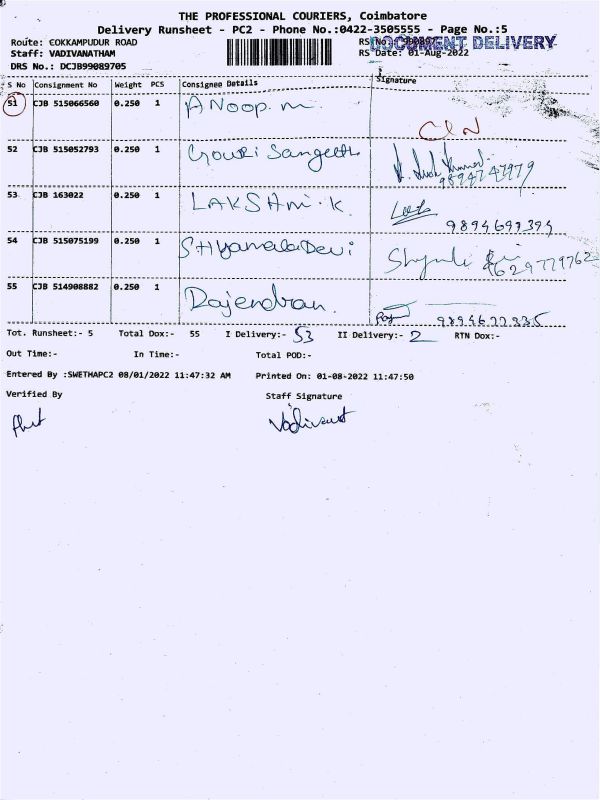 THE PROFESSIONAL COURIERS, Coimbatore
Delivery Runsheet - PC2 - Phone No.:0422-3505555 - Page No.:5
Route: COKKAMPUDUR ROAD
DOCUMENT DELIVERY
Staff: VADIVANATHAM
RS Date: 01-Aug-2022
DRS No.: DCJB99089705
S No Consignment No Weight PCS Consignee Details Signature
51 CJB 515066560 0.250 1 ANoop.m.
52 CJB 515052793 0.250 1 Gowri Sangeeth 9894747979
53 CJB 163022 0.250 1 LAKSHmi.K. 9894697394
54 CJB 515075199 0.250 1 SHYamalaDevi 9629779762
55 CJB 514908882 0.250 1 Rajendran.
Tot. Runsheet:- 5 Total Dox:- 55 I Delivery:- 53 II Delivery:- 2 RTN Dox:-
Out Time:- In Time:- Total POD:-
Entered By :SWETHAPC2 08/01/2022 11:47:32 AM Printed On: 01-08-2022 11:47:50
Verified By Staff Signature